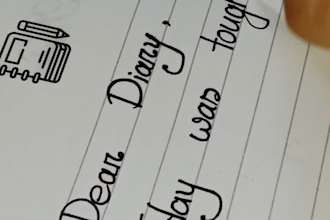 Dear Diary,
day was tough